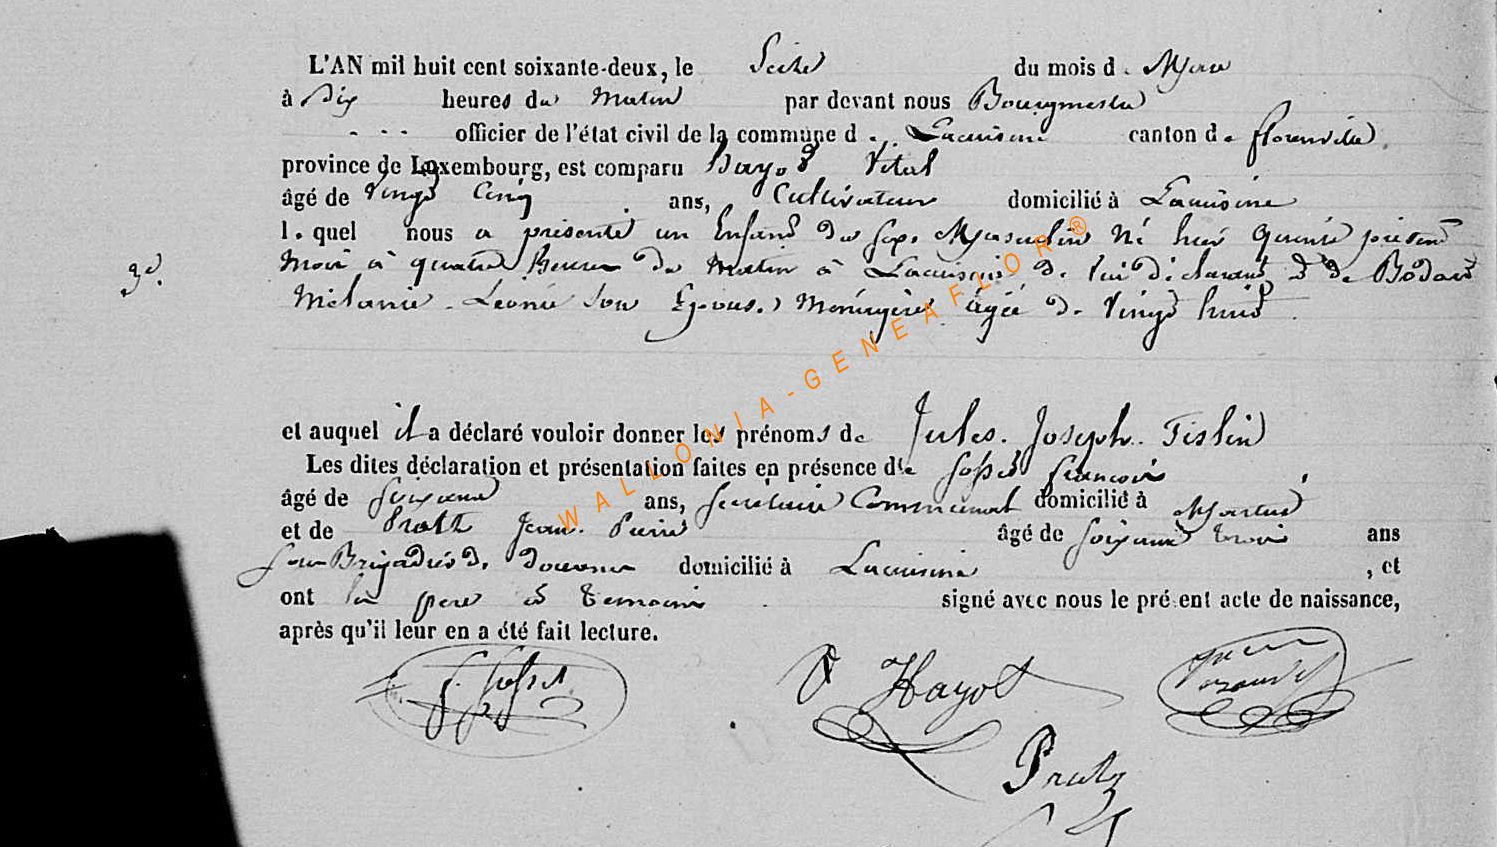 L'AN mil huit cent soixante-deux, le Seize du mois de Mars
à Dix heures du Matin par devant nous Bourgmestre
officier de l'état civil de la commune de Lacuisine canton de florenville
province de Luxembourg, est comparu Hayot Vital
âgé de Vingt Cinq ans, Cultivateur domicilié à Lacuisine
lequel nous a présenté un Enfant du sexe Masculin Né hier quinze présent
3e.
Mois à quatre Heures du Matin à Lacuisine de lui déclarant et de Bodard
Mélanie Léonie son Epouse Ménagère âgée de Vingt huit
et auquel il a déclaré vouloir donner les prénoms de Jules Joseph
Les dites déclaration et présentation faites en présence de François
âgé de Soixante ans, Secrétaire Communal domicilié à
et de Jean Pierre âgé de Soixante trois ans
Sous Brigadier de douanes domicilié à Lacuisine , et
ont le père et témoins signé avec nous le présent acte de naissance,
après qu'il leur en a été fait lecture.
V Hayot
WALLONIA-GENEAFLOR®